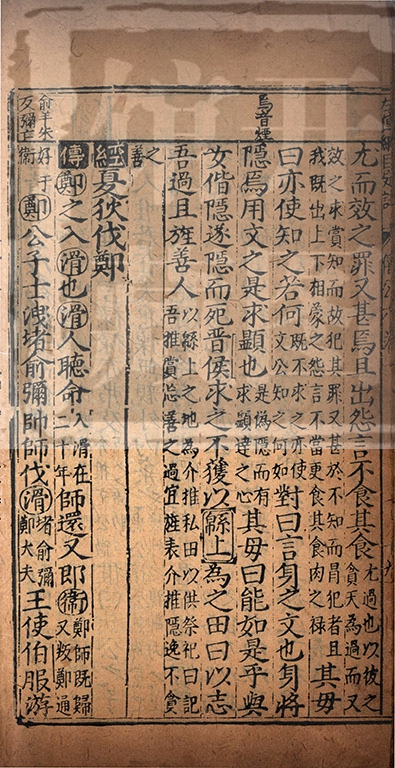 尤而效之罪又甚焉且出怨言不食其食尤過也以彼之貪天為過而又
效之求賞知而故犯其罪又甚於不知而冒犯者且我既出上下相蒙之怨言不當更食其食肉之禄其母
曰亦使知之若何既不求之亦使文公知之何如對曰言身之文也身將
焉音煙
隱焉用文之是求顯也是偽隱而有求顯達之心其母曰能如是乎與
女偕隱遂隱而死晉侯求之不獲以緜上為之田曰以志
吾過且旌善人以緜上之地為介推私田以供祭祀曰記吾推賞忘善之過宜旌表介推隱逸不貪
之善
經夏狄伐鄭
傳鄭之入滑也滑人聽命入滑在二十年師還又即衛鄭師既歸又叛鄭通
俞羊朱反彌亡
好于衛鄭公子士洩堵俞彌帥師伐滑堵俞彌鄭大夫王使伯服游